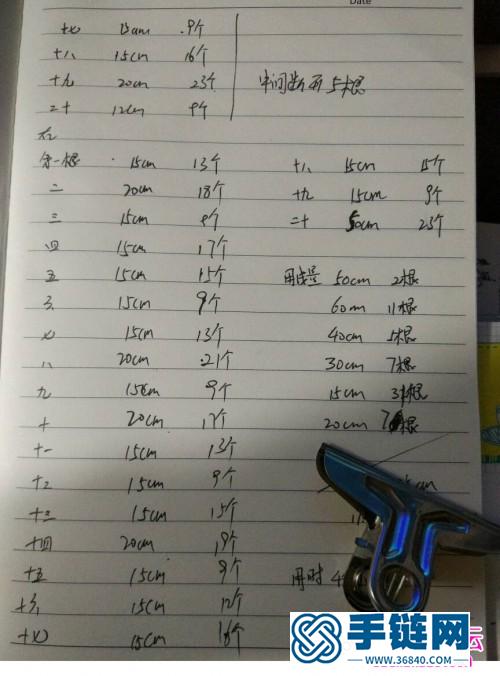 Date
十七 15cm 9个
十八 15cm 16个
十九 20cm 23个 中间断开5根
二十 12cm 9个
右
第一根 15cm 13个 十八 15cm 15个
二 20cm 18个 十九 15cm 9个
三 15cm 9个 二十 50cm 23个
四 15cm 17个
五 15cm 15个 用线量 50cm 2根
六 15cm 9个 60cm 11根
七 15cm 13个 40cm 5根
八 20cm 21个 30cm 7根
九 15cm 9个 15cm 31根
十 20cm 17个 20cm 根
十一 15cm 13个
十二 15cm 9个
十三 15cm 15个
十四 20cm 19个
十五 15cm 9个 用时
十六 15cm 12个
十七 15cm 18个
手链网
www.36840.com